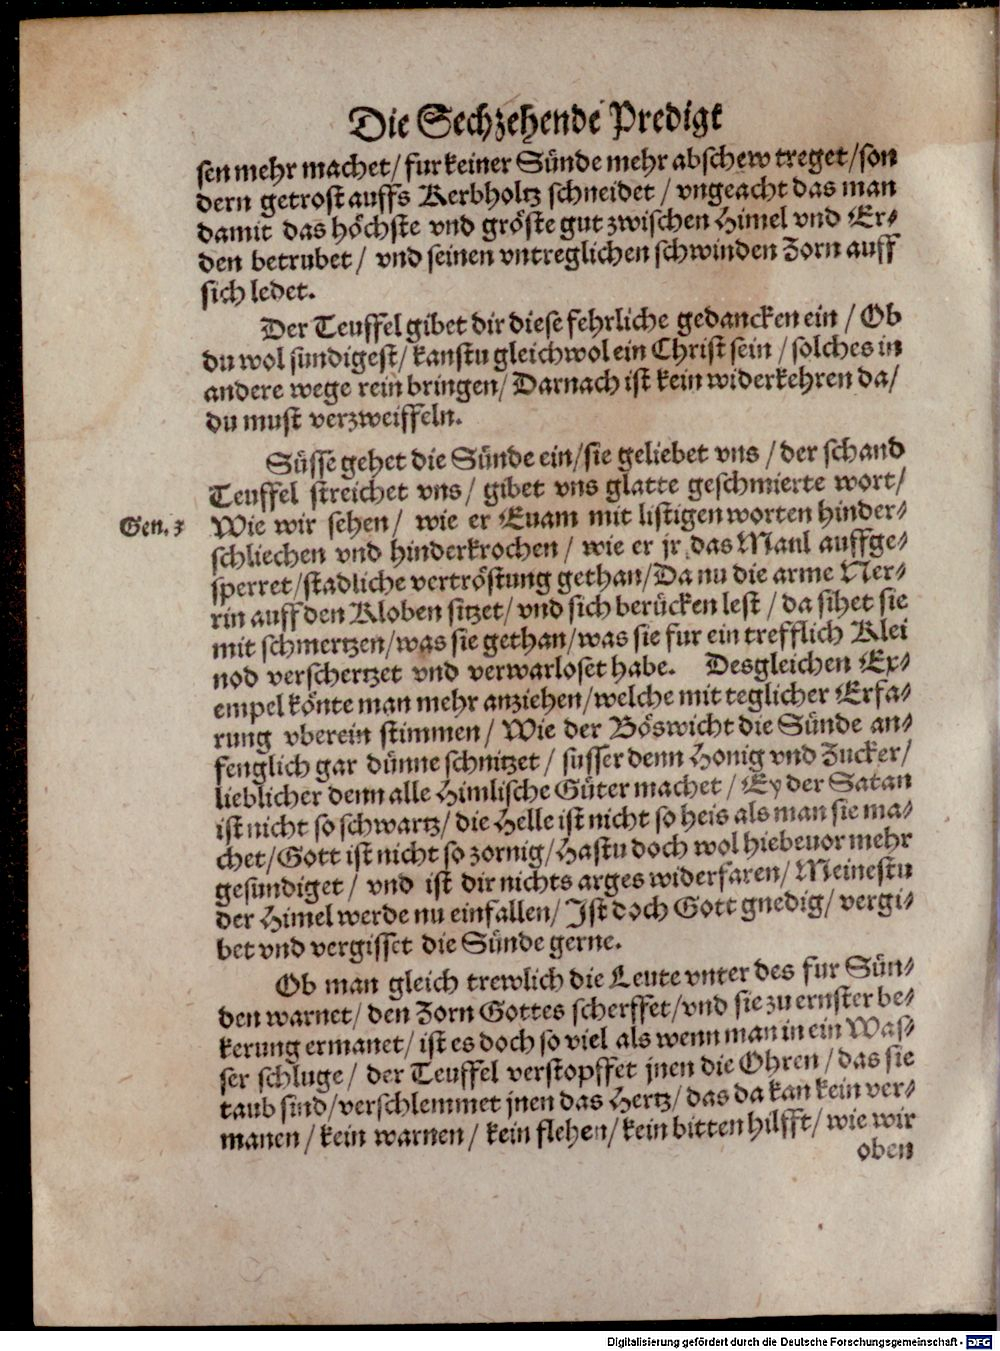 Die Sechzehende Predigt
sen mehr machet/ fur keiner Sünde mehr abschew treget/ son
dern getrost auffs Kerbholtz schneidet/ vngeacht das man
damit das höchste vnd gröste gut zwischen Himel vnd Er-
den betrubet/ vnd seinen vntreglichen schwinden Zorn auff
sich ledet.
Der Teuffel gibet dir diese fehrliche gedancken ein/ Ob
du wol sundigest/ kanstu gleichwol ein Christ sein/ solches in
andere wege rein bringen/ Darnach ist kein widerkehren da/
du must verzweiffeln.
Süsse gehet die Sünde ein/ sie geliebet vns/ der schand
Teuffel streichet vns/ gibet vns glatte geschmierte wort/
Gen. 3 Wie wir sehen/ wie er Euam mit listigen worten hinder-
schliechen vnd hinderkrochen/ wie er jr das Maul auffge-
sperret/ stadliche vertröstung gethan/ Da nu die arme Ner-
rin auff den Kloben sitzet/ vnd sich berücken lest/ da sihet sie
mit schmertzen/ was sie gethan/ was sie fur ein trefflich Klei
nod verschertzet vnd verwarloset habe. Desgleichen Ex-
empel könte man mehr anziehen/ welche mit teglicher Erfa-
rung vberein stimmen/ Wie der Böswicht die Sünde an-
fenglich gar dünne schnitzet/ susser denn Honig vnd Zucker/
lieblicher denn alle Himlische Güter machet/ Ey der Satan
ist nicht so schwartz/ die Helle ist nicht so heis als man sie ma-
chet/ Gott ist nicht so zornig/ Hastu doch wol hiebeuor mehr
gesundiget/ vnd ist dir nichts arges widerfaren/ Meinestu
der Himel werde nu einfallen/ Ist doch Gott gnedig/ vergi-
bet vnd vergisset die Sünde gerne.
Ob man gleich trewlich die Leute vnter des fur Sün-
den warnet/ den Zorn Gottes scherffet/ vnd sie zu ernster be-
kerung ermanet/ ist es doch so viel als wenn man in ein Was-
ser schluge/ der Teuffel verstopffet jnen die Ohren/ das sie
taub sind/ verschlemmet jnen das Hertz/ das da kan kein ver-
manen/ kein warnen/ kein flehen/ kein bitten hilfft/ wie wir
oben
Digitalisierung gefördert durch die Deutsche Forschungsgemeinschaft - DFG